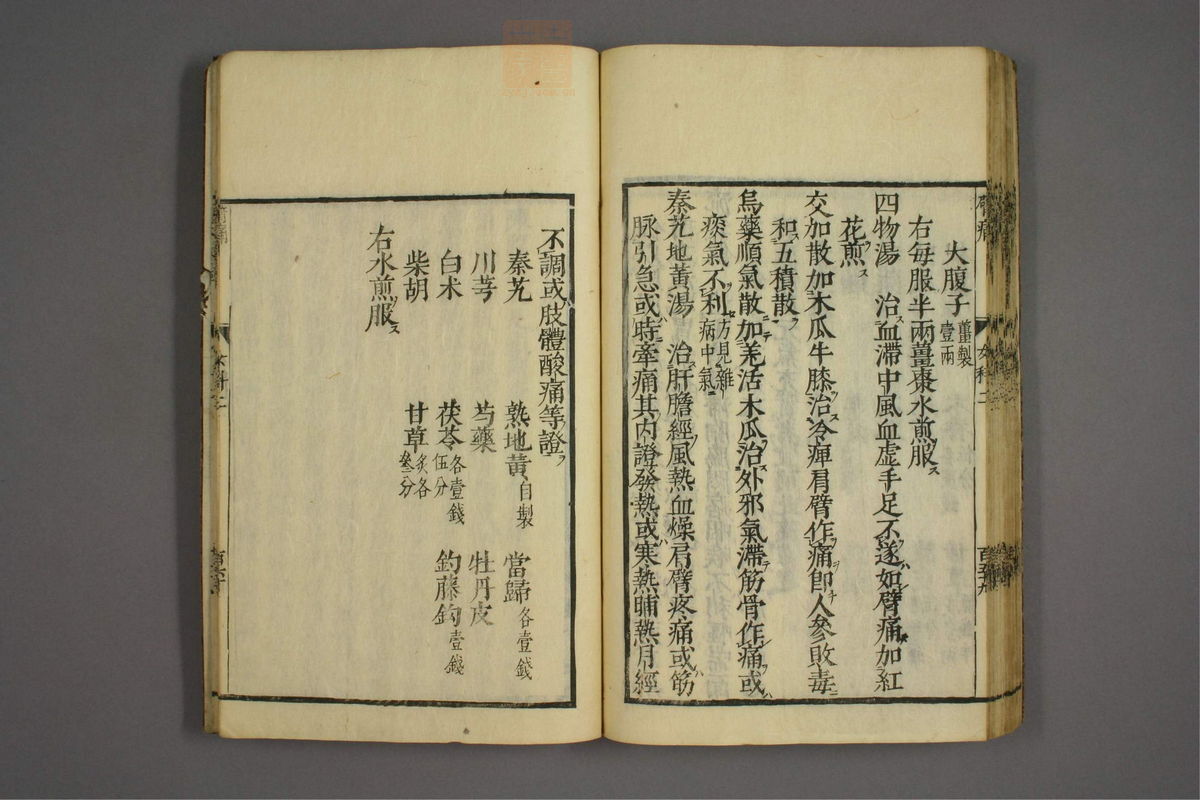 大腹子 薑製壹兩
右每服半兩薑棗水煎服ス
四物湯 治ス血滯中風血虛手足不遂如臂痛加紅
花煎ス
交加散加木瓜牛膝治冷痺肩臂作痛卽人參敗毒
和五積散
烏藥順氣散加羌活木瓜治外邪氣滯筋骨作痛或
痰氣不利 方見雜病中氣
秦艽地黃湯 治肝膽經風熱血燥肩臂疼痛或筋
脉引急或時牽痛其內證發熱或寒熱晡熱月經
臂痛
女科二
百五十九
不調或肢體酸痛等證
秦艽 熟地黃 自製 當歸 各壹錢
川芎 芍藥 牡丹皮
白朮 茯苓 各壹錢伍分 釣藤鈎 壹錢
柴胡 甘草 炙各叄分
右水煎服ス